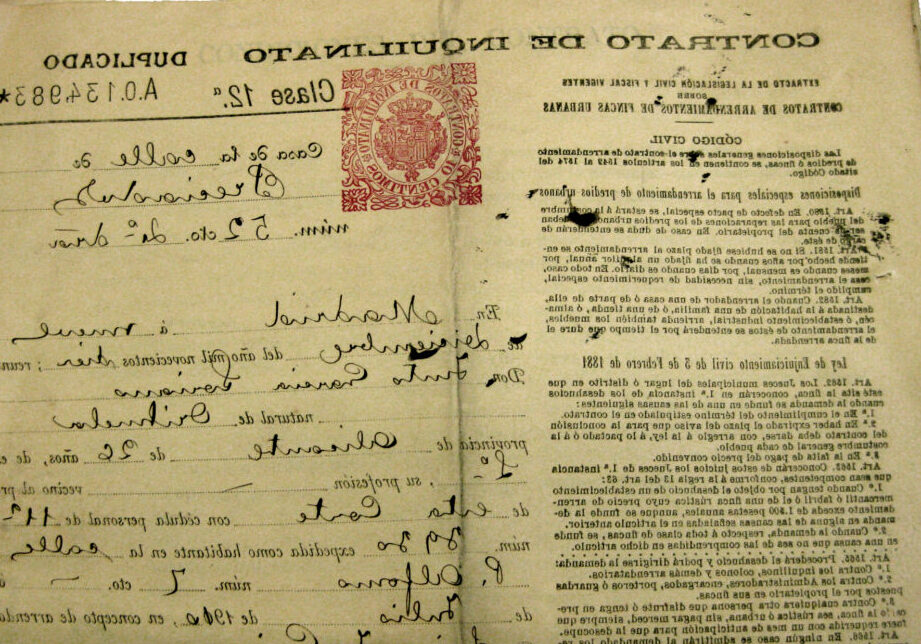 CONTRATO DE INQUILINATO
DUPLICADO
EXTRACTO DE LA LEGISLACIÓN CIVIL Y FISCAL VIGENTES
SOBRE
CONTRATOS DE ARRENDAMIENTOS DE FINCAS URBANAS
CÓDIGO CIVIL
Las disposiciones generales sobre el contrato de arrendamiento
de predios ó fincas, se contienen en los artículos 1549 al 1574 del
citado Código.
Disposiciones especiales para el arrendamiento de predios urbanos
Art. 1580. En defecto de pacto especial, se estará á la costumbre
del pueblo para las reparaciones de los predios urbanos
ser de cuenta del propietario. En caso de duda se entenderán de
cargo de éste.
Art. 1581. Si no se hubiese fijado plazo al arrendamiento se en-
tiende hecho por años cuando se ha fijado un alquiler anual, por
meses cuando es mensual, por días cuando es diario. En todo caso,
cesa el arrendamiento, sin necesidad de requerimiento especial,
cumplido el término.
Art. 1582. Cuando el arrendador de una casa ó de parte de ella,
destinada á la habitación de una familia, ó de una tienda, ó alma-
cén, ó establecimiento industrial, arrienda también los muebles,
el arrendamiento de éstos se entenderá por el tiempo que dure el
de la finca arrendada.
Ley de Enjuiciamiento civil de 3 de Febrero de 1881
Art. 1562. Los Jueces municipales del lugar ó distrito en que
esté sita la finca, conocerán en 1.ª instancia de los desahucios
cuando la demanda se funde en una de las causas siguientes:
1.ª En el cumplimiento del término estipulado en el contrato.
2.ª En haber expirado el plazo del aviso que para la conclusión
del contrato deba darse, con arreglo á la ley, á lo pactado ó á la
costumbre general de cada pueblo.
3.ª En la falta de pago del precio convenido.
Art. 1563. Conocerán de estos juicios los Jueces de 1.ª instancia
que sean competentes, conforme á la regla 13 del art. 63:
1.º Cuando tengan por objeto el desahucio de un establecimiento
mercantil ó fabril ó el de una finca rústica cuyo precio de arren-
damiento exceda de 1.500 pesetas anuales, aunque se funde la de-
manda en alguna de las causas señaladas en el artículo anterior.
2.º Cuando la demanda, respecto á toda clase de fincas, se funde
en una causa que no sea de las comprendidas en dicho artículo.
Art. 1565. Procederá el desahucio y podrá dirigirse la demanda:
1.º Contra los inquilinos, colonos y demás arrendatarios.
2.º Contra los Administradores, encargados, porteros ó guardas
puestos por el propietario en sus fincas.
3.º Contra cualquiera otra persona que disfrute ó tenga en pre-
cario la finca, sea rústica ó urbana, sin pagar merced, siempre que
fuere requerida con un mes de anticipación para que la desocupe.
Art. 1566.
CONTRATOS DE INQUILINATO
10 CENTIMOS
Clase 12.ª
A.0.134.983*
Casa de la calle de
Preciados
núm. 52 cto. 2º dra
En Madrid á nueve
de diciembre del año mil novecientos diez; reuni
Don Justo García Soriano
natural de Orihuela
provincia de Alicante de 26 años, de e
, su profesión, vecino al pr
de esta Corte con cédula personal de 11ª
núm. 3930 expedida como habitante en la calle
P. Alfonso núm. 7 cto. -
de Julio de 1910, en concepto de arrenda